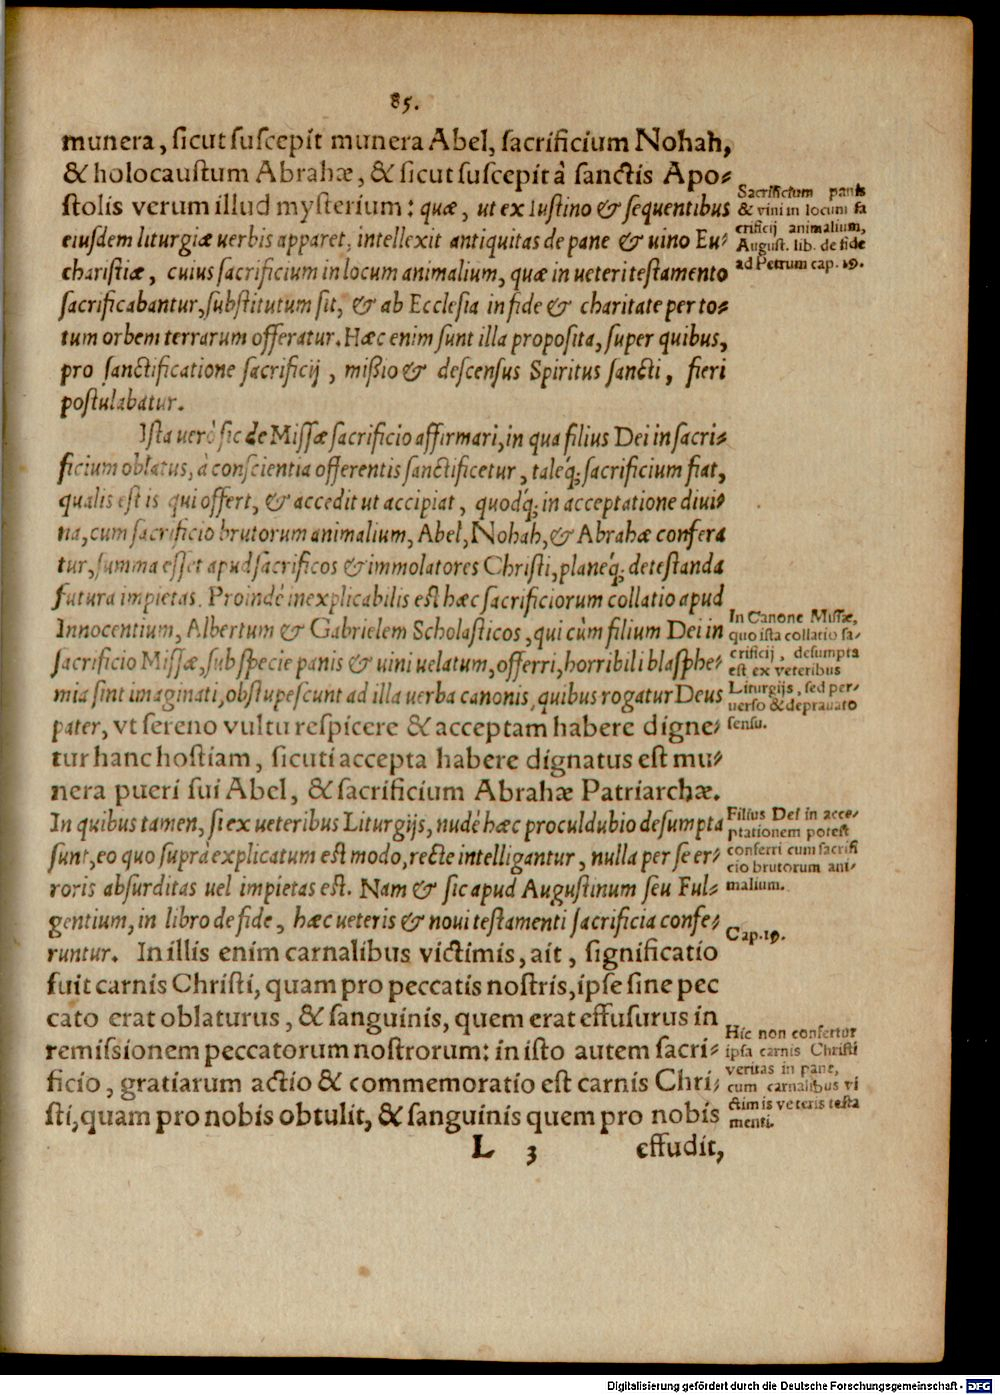 85.
munera, sicut suscepit munera Abel, sacrificium Nohah,
& holocaustum Abrahæ, & sicut suscepit â sanctis Apo-
stolis verum illud mysterium: quæ, ut ex Iustino & sequentibus
eiusdem liturgiæ uerbis apparet, intellexit antiquitas de pane & uino Eu-
charistiæ, cuius sacrificium in locum animalium, quæ in ueteri testamento
sacrificabantur, substitutum sit, & ab Ecclesia in fide & charitate per to-
tum orbem terrarum offeratur. Hæc enim sunt illa proposita, super quibus,
pro sanctificatione sacrificij, missio & descensus Spiritus sancti, fieri
postulabatur.
Sacrificium panis
& vini in locum sa
crificij animalium,
August. lib. de fide
ad Petrum cap. 19.
Ista uerò sic de Missæ sacrificio affirmari, in qua filius Dei in sacri-
ficium oblatus, à conscientia offerentis sanctificetur, taleq́; sacrificium fiat,
qualis est is qui offert, & accedit ut accipiat, quodq́; in acceptatione diui-
na, cum sacrificio brutorum animalium, Abel, Nohah, & Abrahæ confera
tur, summa esset apud sacrificos & immolatores Christi, planeq́; detestanda
futura impietas. Proindè inexplicabilis est hæc sacrificiorum collatio apud
Innocentium, Albertum & Gabrielem Scholasticos, qui cùm filium Dei in
sacrificio Missæ, sub specie panis & uini uelatum, offerri, horribili blasphe-
mia sint imaginati, obstupescunt ad illa uerba canonis, quibus rogatur Deus
pater, vt sereno vultu respicere & acceptam habere digne-
tur hanc hostiam, sicuti accepta habere dignatus est mu-
nera pueri sui Abel, & sacrificium Abrahæ Patriarchæ.
In quibus tamen, si ex ueteribus Liturgijs, nudè hæc proculdubio desumpta
sunt, eo quo suprà explicatum est modo, recte intelligantur, nulla per se er-
roris absurditas uel impietas est. Nam & sic apud Augustinum seu Ful-
gentium, in libro de fide, hæc ueteris & noui testamenti sacrificia confe-
runtur. In illis enim carnalibus victimis, ait, significatio
fuit carnis Christi, quam pro peccatis nostris, ipse sine pec
cato erat oblaturus, & sanguinis, quem erat effusurus in
remissionem peccatorum nostrorum: in isto autem sacri-
ficio, gratiarum actio & commemoratio est carnis Chri-
sti, quam pro nobis obtulit, & sanguinis quem pro nobis
In Canone Missæ,
quo ista collatio sa-
crificij, desumpta
est ex veteribus
Liturgijs, sed per-
uerso & deprauato
sensu.
Filius Dei in acce-
ptationem potest
conferri cum sacrifi
cio brutorum ani-
malium.
Cap. 19.
Hic non confertur
ipsa carnis Christi
veritas in pane,
cum carnalibus vi
ctimis veteris testa
menti.
L 3 effudit,
Digitalisierung gefördert durch die Deutsche Forschungsgemeinschaft - DFG